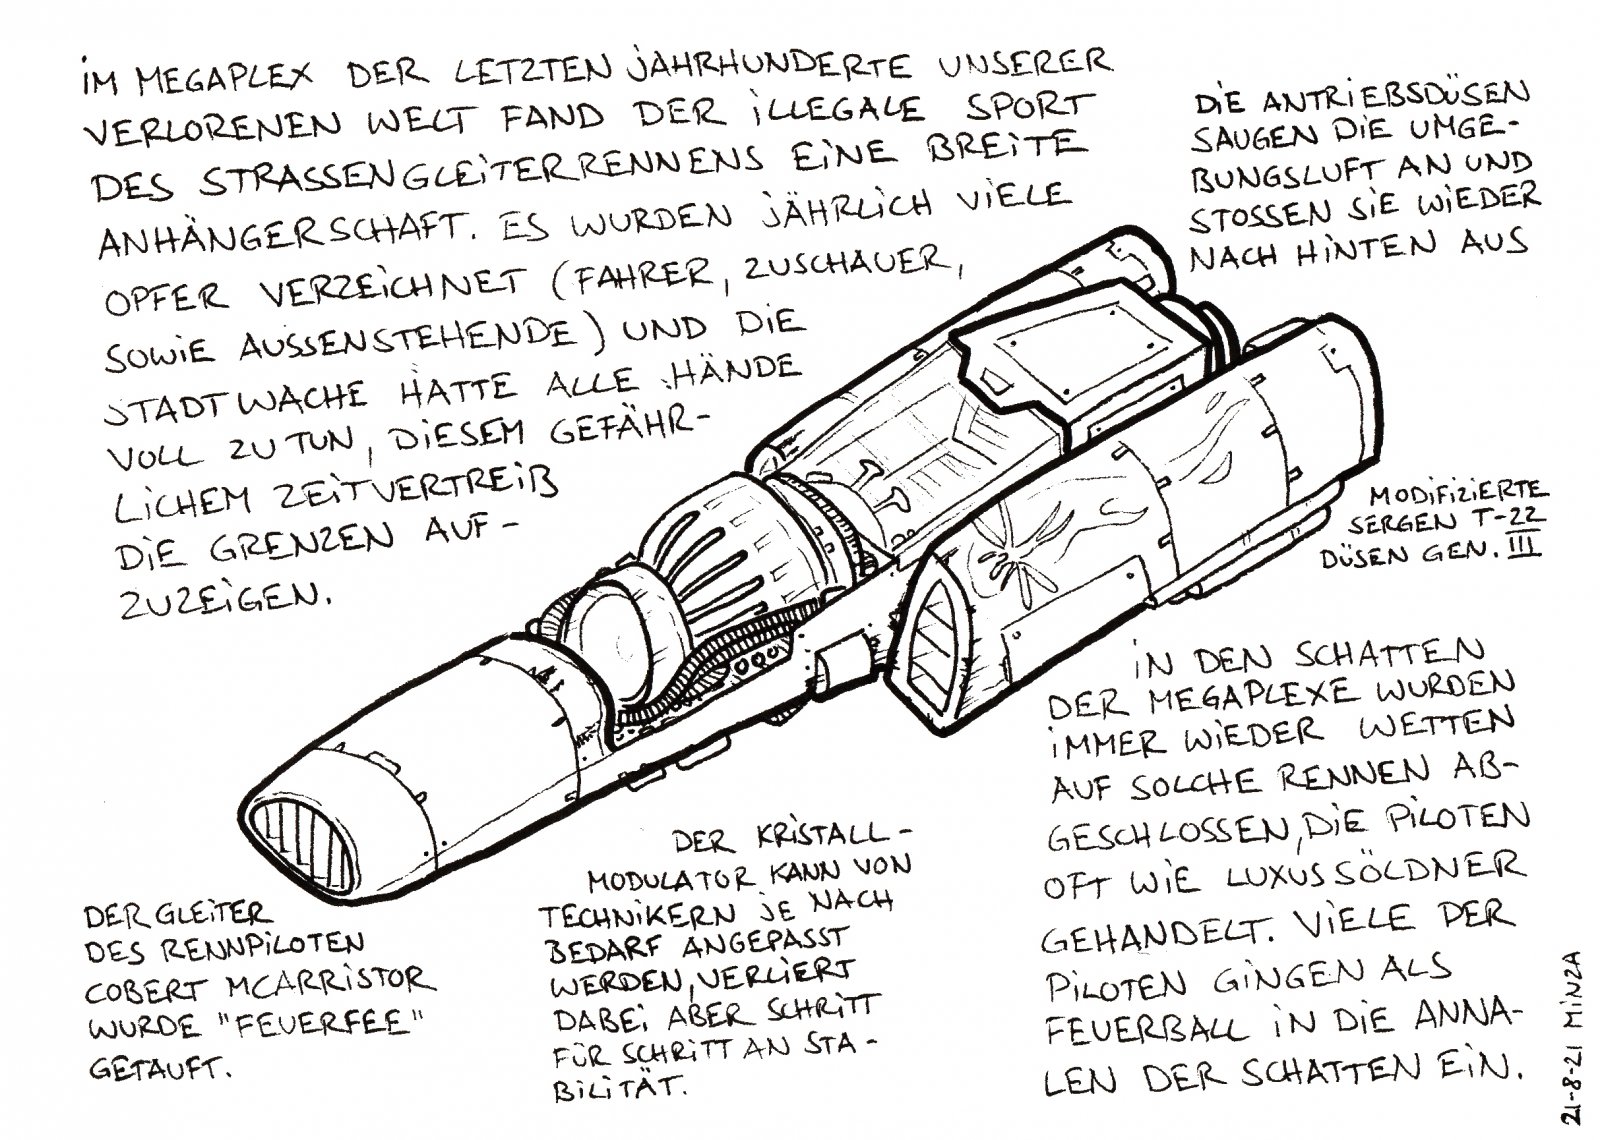 IM MEGAPLEX DER LETZTEN JAHRHUNDERTE UNSERER
VERLORENEN WELT FAND DER ILLEGALE SPORT
DES STRASSENGLEITERRENNENS EINE BREITE
ANHÄNGERSCHAFT. ES WURDEN JÄHRLICH VIELE
OPFER VERZEICHNET (FAHRER, ZUSCHAUER,
SOWIE AUSSENSTEHENDE) UND DIE
STADTWACHE HATTE ALLE HÄNDE
VOLL ZU TUN, DIESEM GEFÄHR-
LICHEM ZEITVERTREIB
DIE GRENZEN AUF-
ZUZEIGEN.
DIE ANTRIEBSDÜSEN
SAUGEN DIE UMGE-
BUNGSLUFT AN UND
STOSSEN SIE WIEDER
NACH HINTEN AUS
MODIFIZIERTE
SERGEN T-22
DÜSEN GEN. III
IN DEN SCHATTEN
DER MEGAPLEXE WURDEN
IMMER WIEDER WETTEN
AUF SOLCHE RENNEN AB-
GESCHLOSSEN, DIE PILOTEN
OFT WIE LUXUSSÖLDNER
GEHANDELT. VIELE DER
PILOTEN GINGEN ALS
FEUERBALL IN DIE ANNA-
LEN DER SCHATTEN EIN.
DER KRISTALL-
MODULATOR KANN VON
TECHNIKERN JE NACH
BEDARF ANGEPASST
WERDEN, VERLIERT
DABEI ABER SCHRITT
FÜR SCHRITT AN STA-
BILITÄT.
DER GLEITER
DES RENNPILOTEN
COBERT MCARRISTOR
WURDE "FEUERFEE"
GETAUFT.
21-8-21 MINZA